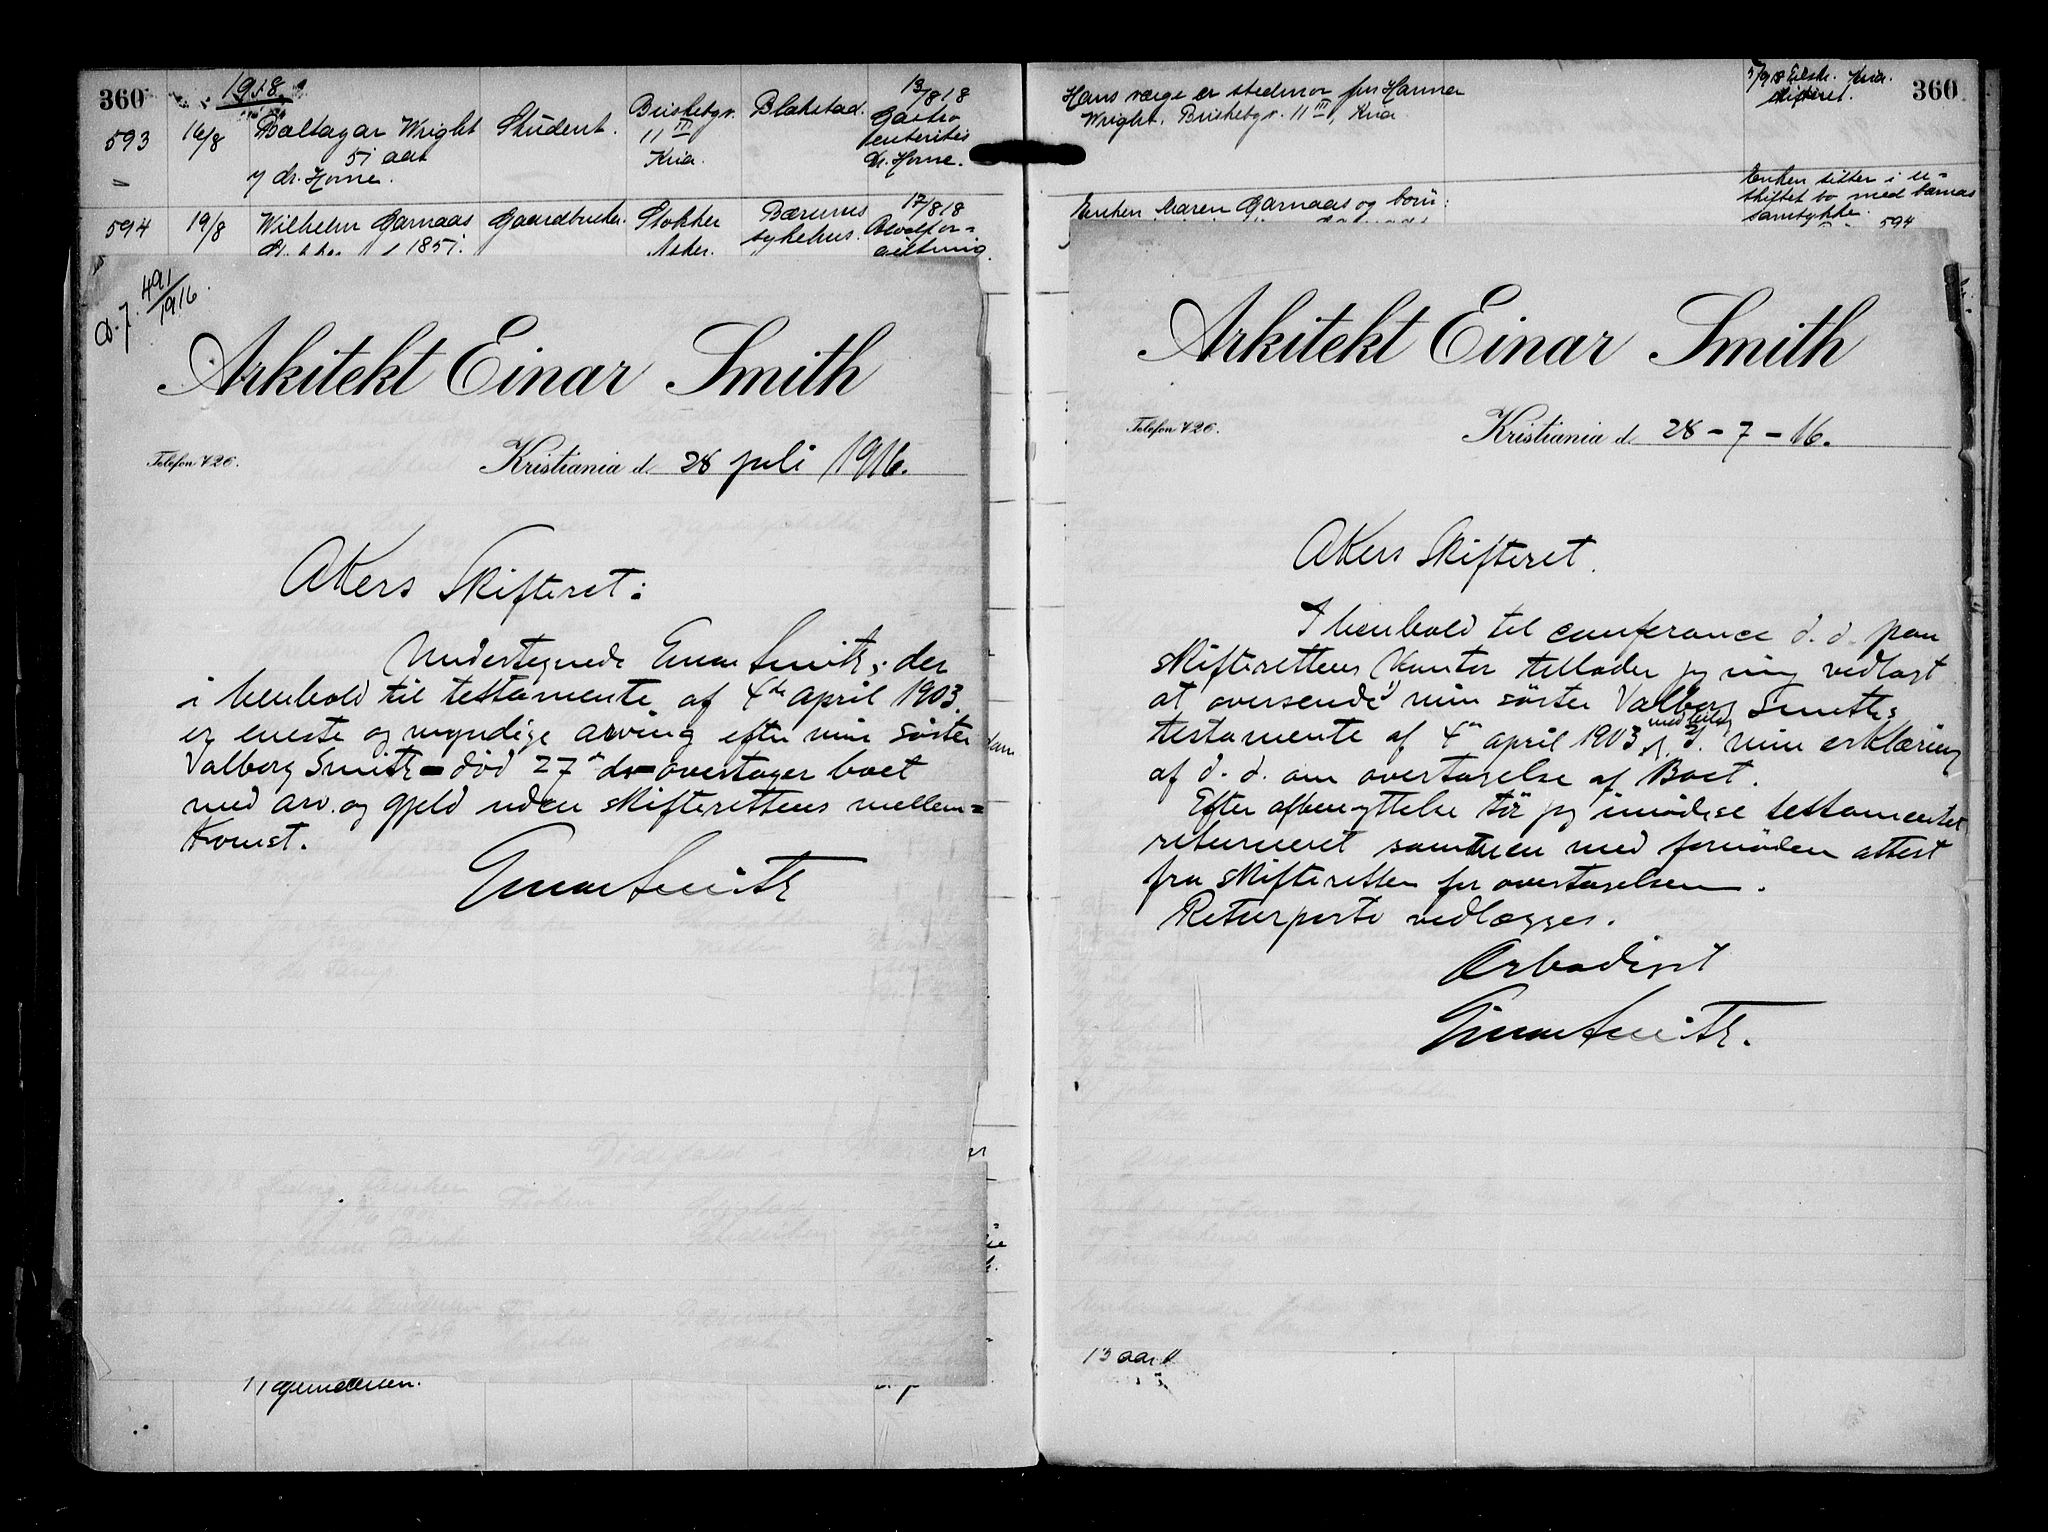 360
1918
593
16/8
Baltazar Wright
51 aar
v/ dr. Horne.
Student.
Briskebyv.
11 III
Kria.
Blakstad.
13/8 18
Gastro
enteritis
Dr. Horne.
594
19/8
Wilhelm Garnaas
f 1851.
Gaardbruker.
Stokker
Asker.
Bærums
sykehus.
17/8 18
D.J. 491/1916.
Arkitekt Einar Smith
Telefon 426.
Kristiania d. 28 juli 1916.
Akers Skifteret:
Undertegnede Einar Smith, der
i henhold til testamente af 4de April 1903
er eneste og myndige arving efter min søster
Valborg Smith - død 27 ds - overtager boet
med arv. og gjeld uden skifterettens mellem=
komst.
Einar Smith
Gundersen.
Hans værge er stedmor fru Hanna
Wright, Briskebyv. 11 III, Kria
Skifteret.
360
Enken Maren Garnaas og børn:
Enken sitter i u=
skiftet bo med barnas
samtykke.
594
Arkitekt Einar Smith
Telefon 426.
Kristiania d. 28-7-16.
Akers Skifteret.
I henhold til conferance d. d. paa
skifterettens kontor tillader jeg mig vedlagt
at oversende min søster Valborg Smiths
testamente af 4de april 1903 min erklæring
af d. d. om overtagelse af Boet.
Efter afbenyttelse tør jeg imødese testamentet
returneret sammen med fornøden attest
fra skifteretten for overtagelsen.
Returporto vedlægges.
Ærbødigst
Einar Smith.
13 aar